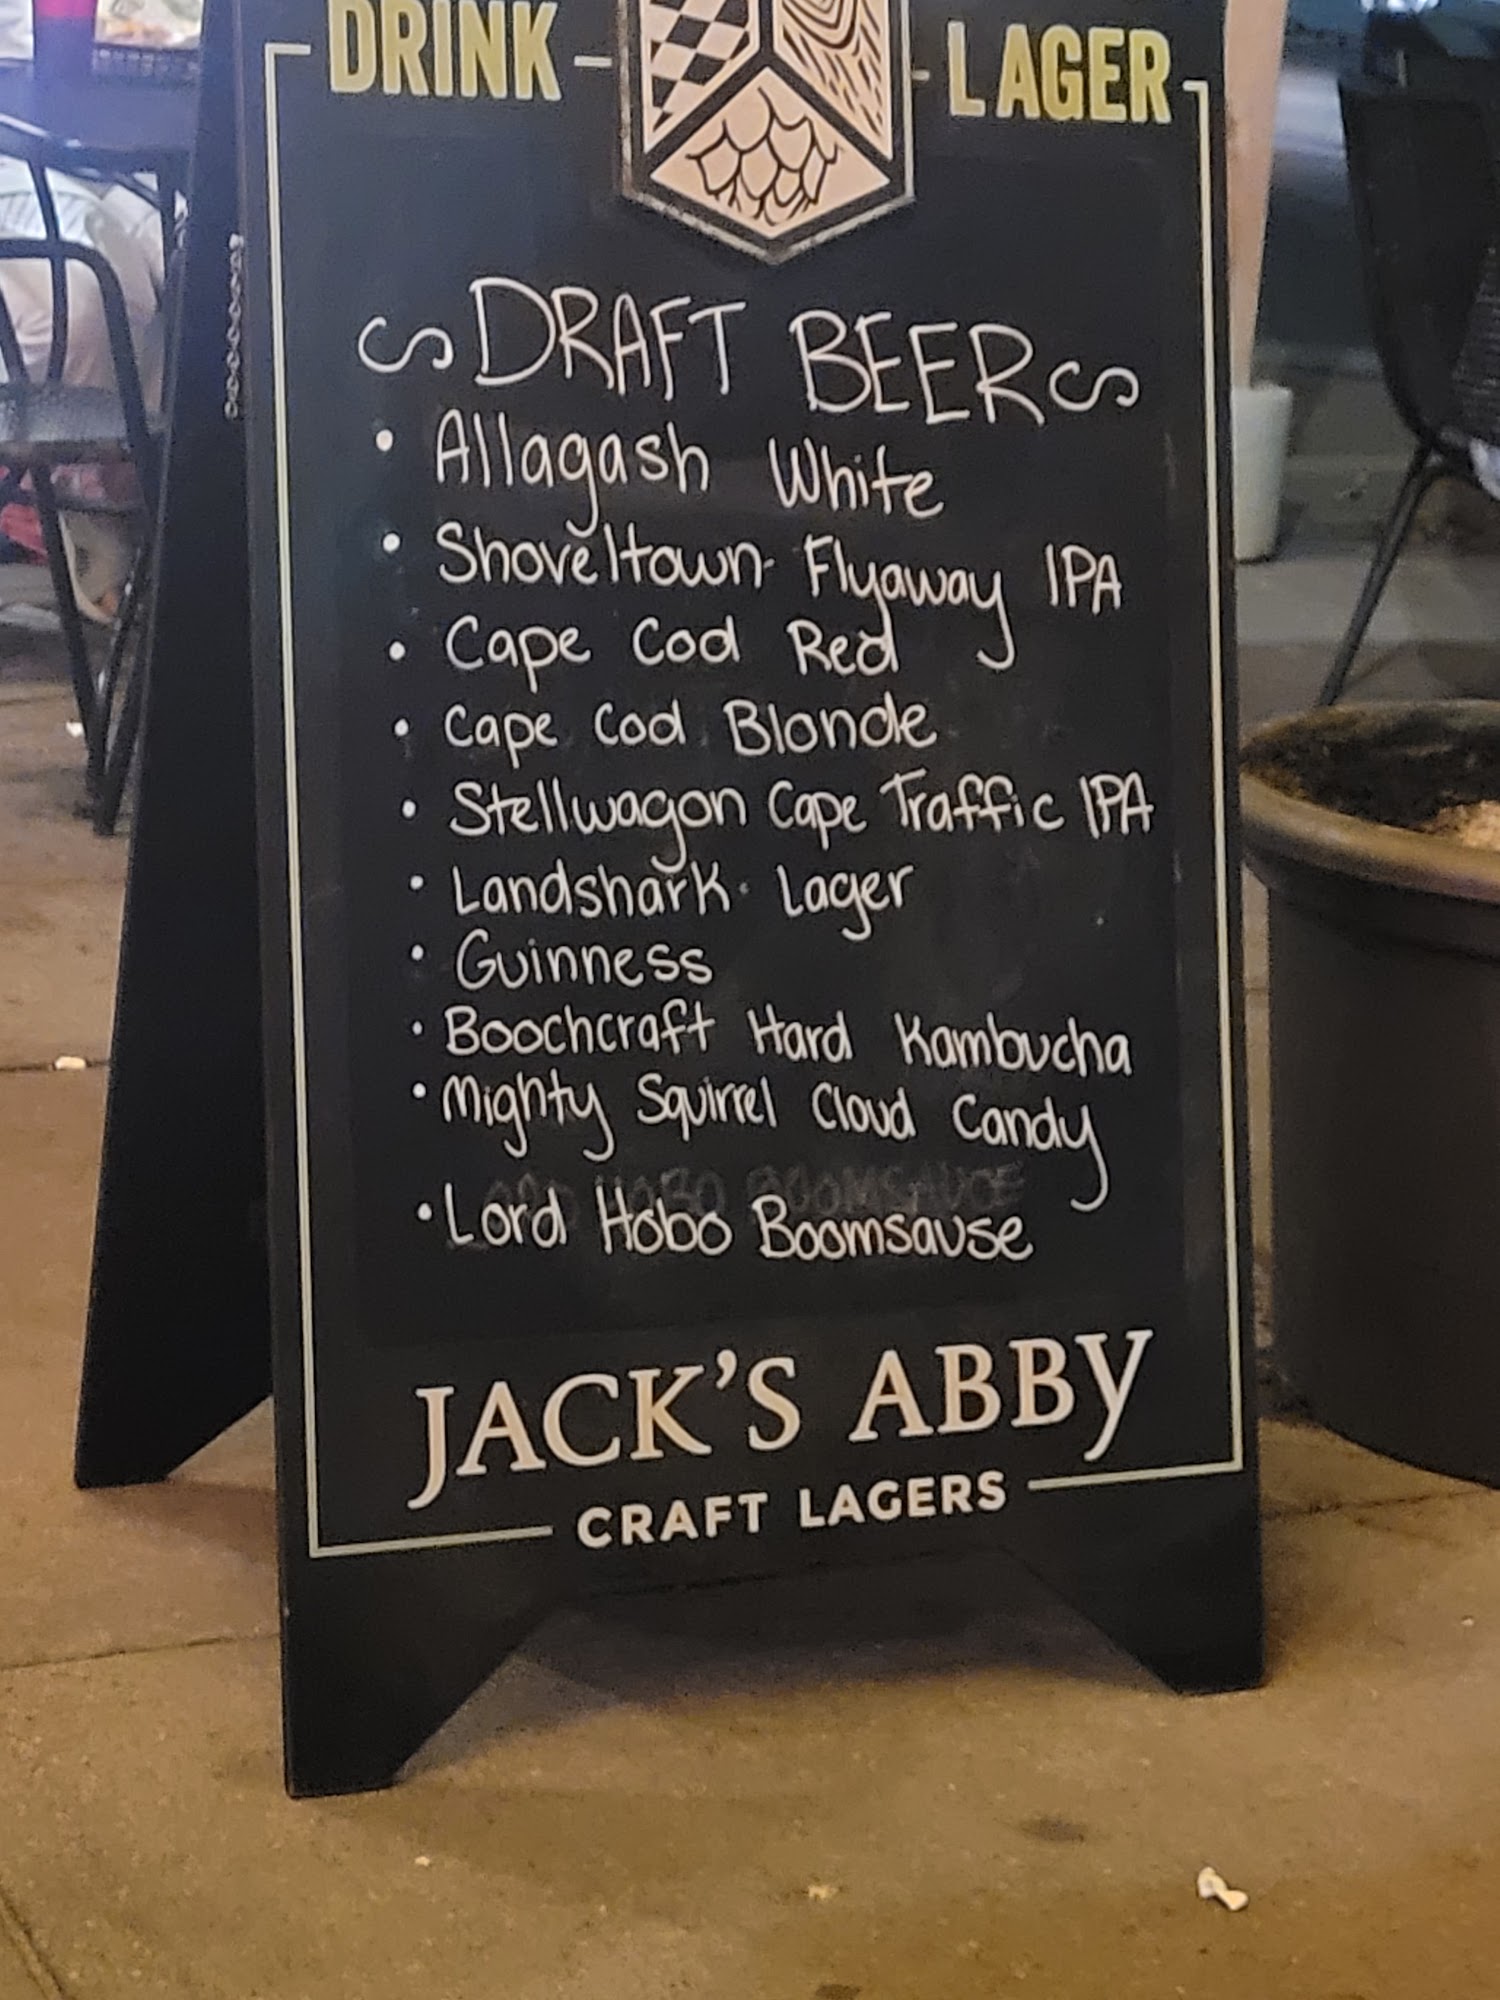 DRINK LAGER
DRAFT BEER
• Allagash White
• Shoveltown Flyaway IPA
• Cape Cod Red
• Cape Cod Blonde
• Stellwagon Cape Traffic IPA
• Landshark Lager
• Guinness
• Boochcraft Hard Kambucha
• Mighty Squirrel Cloud Candy
• Lord Hobo Boomsause
JACK'S ABBY
CRAFT LAGERS